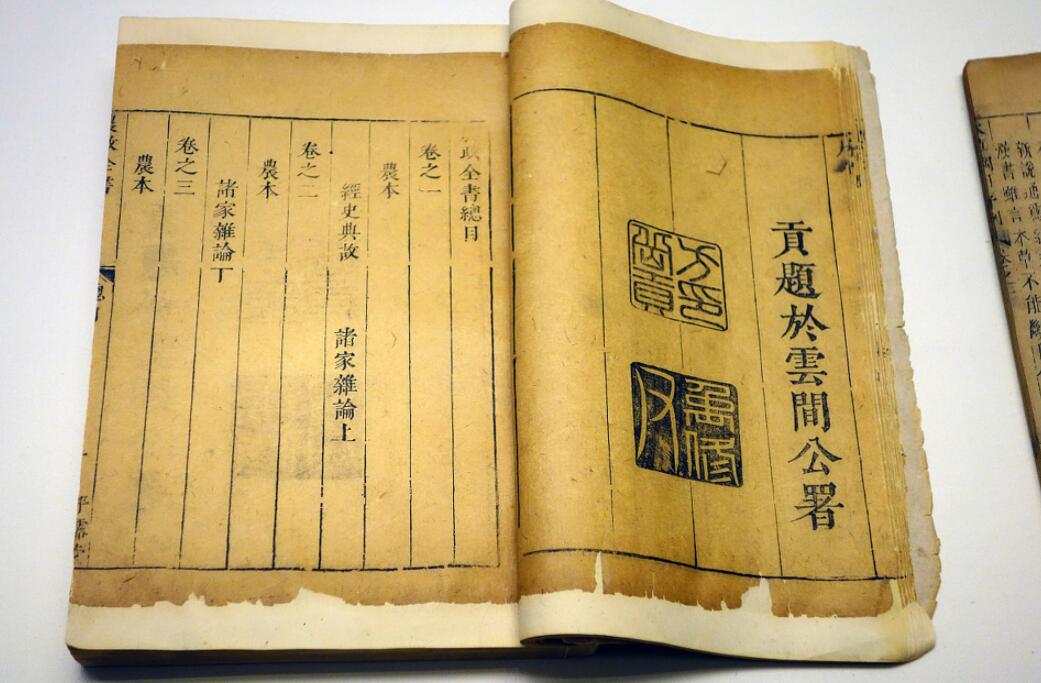 貢題於雲間公署
方岳貢印
禹修
政全書總目
卷之一
農本
經史典故 諸家雜論上
卷之二
農本
諸家雜論下
卷之三
農本